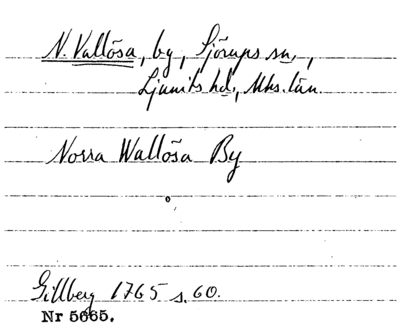 N. Vallösa, by, Sjörups sn.,
Ljunits hd., Mhs. län.
Norra Wallösa By
Gillberg 1765 s. 60.
Nr 5665.